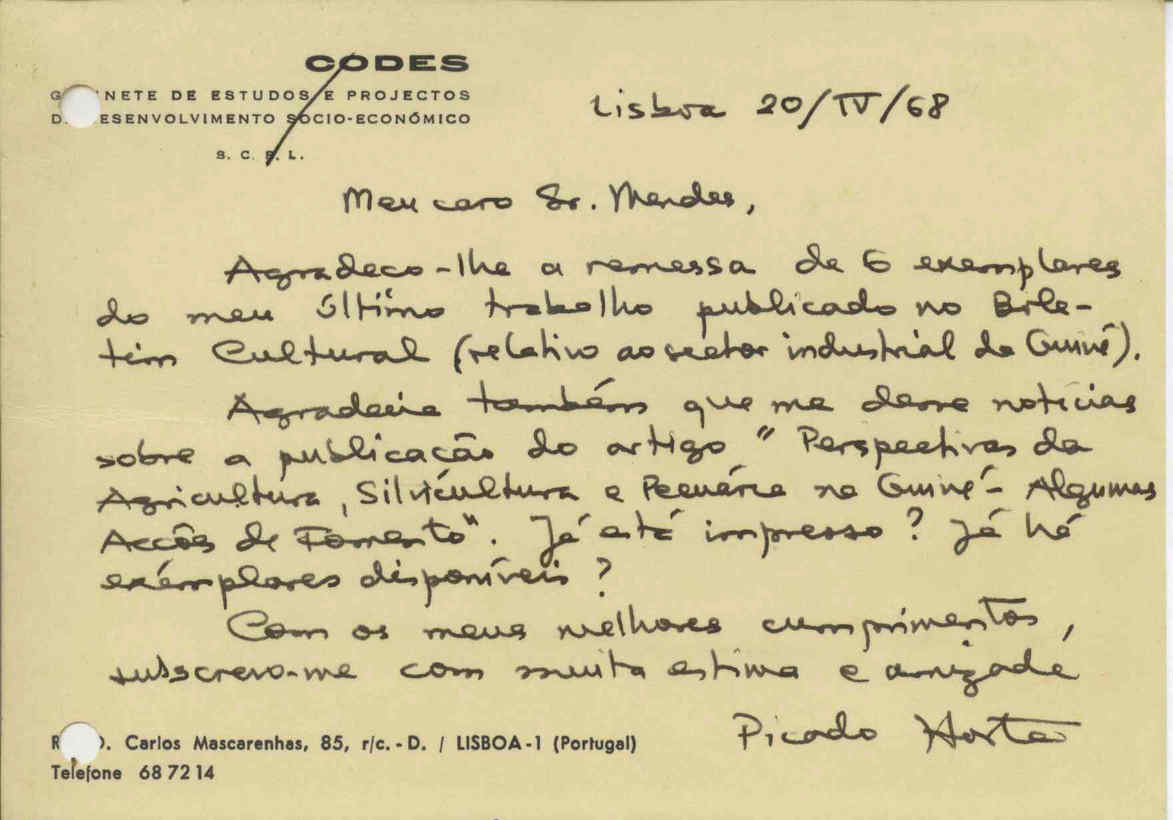 CODES
G NETE DE ESTUDOS E PROJECTOS
D ESENVOLVIMENTO SÓCIO-ECONÓMICO
S. C. R. L.
Lisboa 20/IV/68
Meu caro Sr. Mendes,
Agradeço-lhe a remessa de 6 exemplares
do meu último trabalho publicado no Bole-
tim Cultural (relativo ao sector industrial da Guiné).
Agradecia também que me desse notícias
sobre a publicação do artigo "Perspectivas da
Agricultura, Silvicultura e Pecuária na Guiné - Algumas
Acções de Fomento". Já está impresso? Já há
exemplares disponíveis?
Com os meus melhores cumprimentos,
subscrevo-me com muita estima e amizade
Picado Horta
R D. Carlos Mascarenhas, 85, r/c. - D. / LISBOA - 1 (Portugal)
Telefone 68 72 14